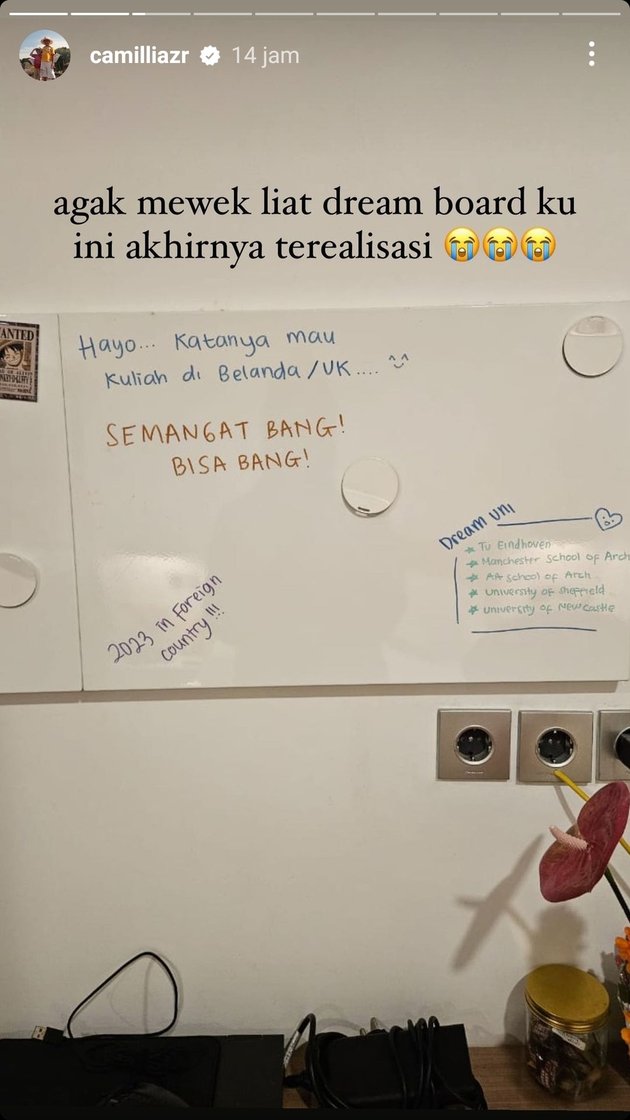 camilliazr 14 jam
agak mewek liat dream board ku
ini akhirnya terealisasi 😭😭😭
WANTED
Hayo... Katanya mau
Kuliah di Belanda/UK....
SEMANGAT BANG!
BISA BANG!
Dream Uni
TU Eindhoven
Manchester School of Arch
AA School of Arch
University of Sheffield
University of Newcastle
2023 in Foreign
country!!!